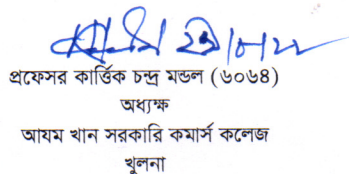 প্রফেসর কার্ত্তিক চন্দ্র মন্ডল (৬০৬৪)
অধ্যক্ষ
আযম খান সরকারি কমার্স কলেজ
খুলনা